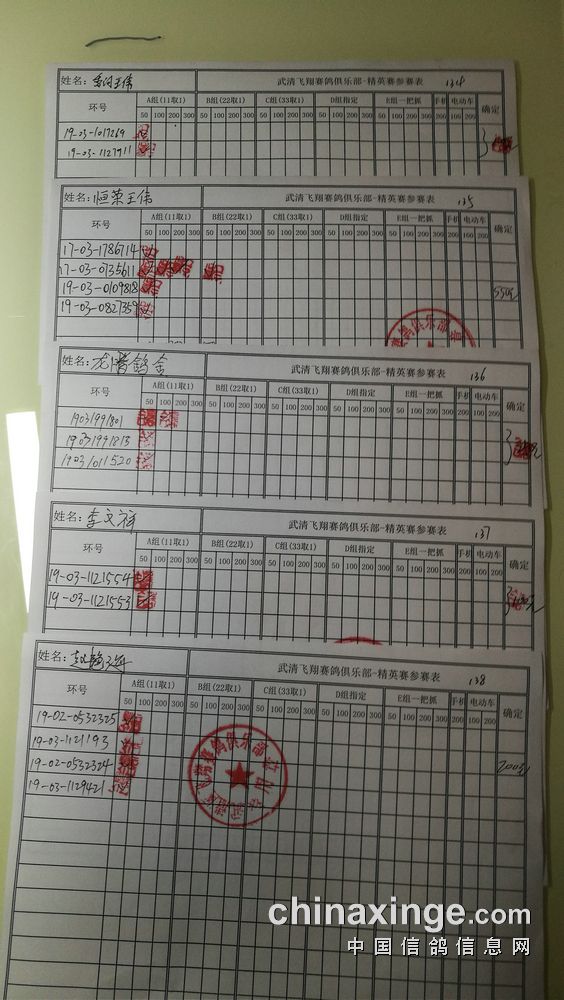 姓名： 王伟 武清飞翔赛鸽俱乐部-精英赛参赛表 134
环号 A组(11取1) B组(22取1) C组(33取1) D组指定 E组一把抓 手机 电动车 确定
50 100 200 300 50 100 200 300 50 100 200 300 50 100 200 300 50 100 200 300 100 100 200
19-03-1017269
19-03-1127911
姓名： 恒荣王伟 武清飞翔赛鸽俱乐部-精英赛参赛表 135
环号 A组(11取1) B组(22取1) C组(33取1) D组指定 E组一把抓 手机 电动车 确定
50 100 200 300 50 100 200 300 50 100 200 300 50 100 200 300 50 100 200 300 100 100 200
17-03-1786714
17-03-0735611
19-03-0109818 550元
19-03-0827359
姓名： 武清飞翔赛鸽俱乐部-精英赛参赛表 136
环号 A组(11取1) B组(22取1) C组(33取1) D组指定 E组一把抓 手机 电动车 确定
50 100 200 300 50 100 200 300 50 100 200 300 50 100 200 300 50 100 200 300 100 100 200
19031991801
19031991813
19031011520
姓名： 李文祥 武清飞翔赛鸽俱乐部-精英赛参赛表 137
环号 A组(11取1) B组(22取1) C组(33取1) D组指定 E组一把抓 手机 电动车 确定
50 100 200 300 50 100 200 300 50 100 200 300 50 100 200 300 50 100 200 300 100 100 200
19-03-1121554
19-03-1121553
姓名： 武清飞翔赛鸽俱乐部-精英赛参赛表 138
环号 A组(11取1) B组(22取1) C组(33取1) D组指定 E组一把抓 手机 电动车 确定
50 100 200 300 50 100 200 300 50 100 200 300 50 100 200 300 50 100 200 300 100 100 200
19-02-0532325
19-03-1121193
19-02-0532324 200元
19-03-1129421
chinaxinge.com
中国信鸽信息网